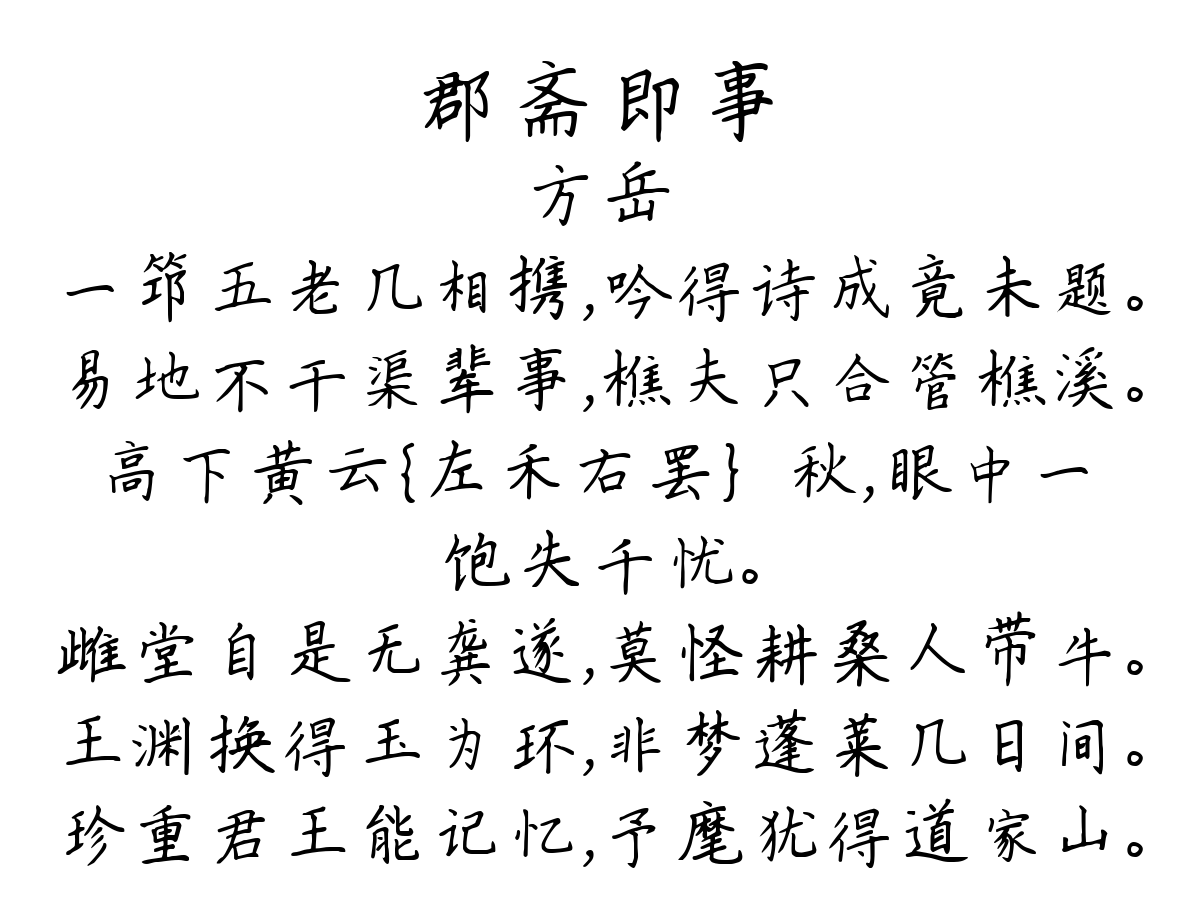 郡斋即事
方岳
一筇五老几相携,吟得诗成竟未题。
易地不干渠辈事,樵夫只合管樵溪。
高下黄云{左禾右罢} 秋,眼中一
饱失千忧。
雌堂自是无龚遂,莫怪耕桑人带牛。
王渊换得玉为环,非梦蓬莱几日间。
珍重君王能记忆,予麾犹得道家山。